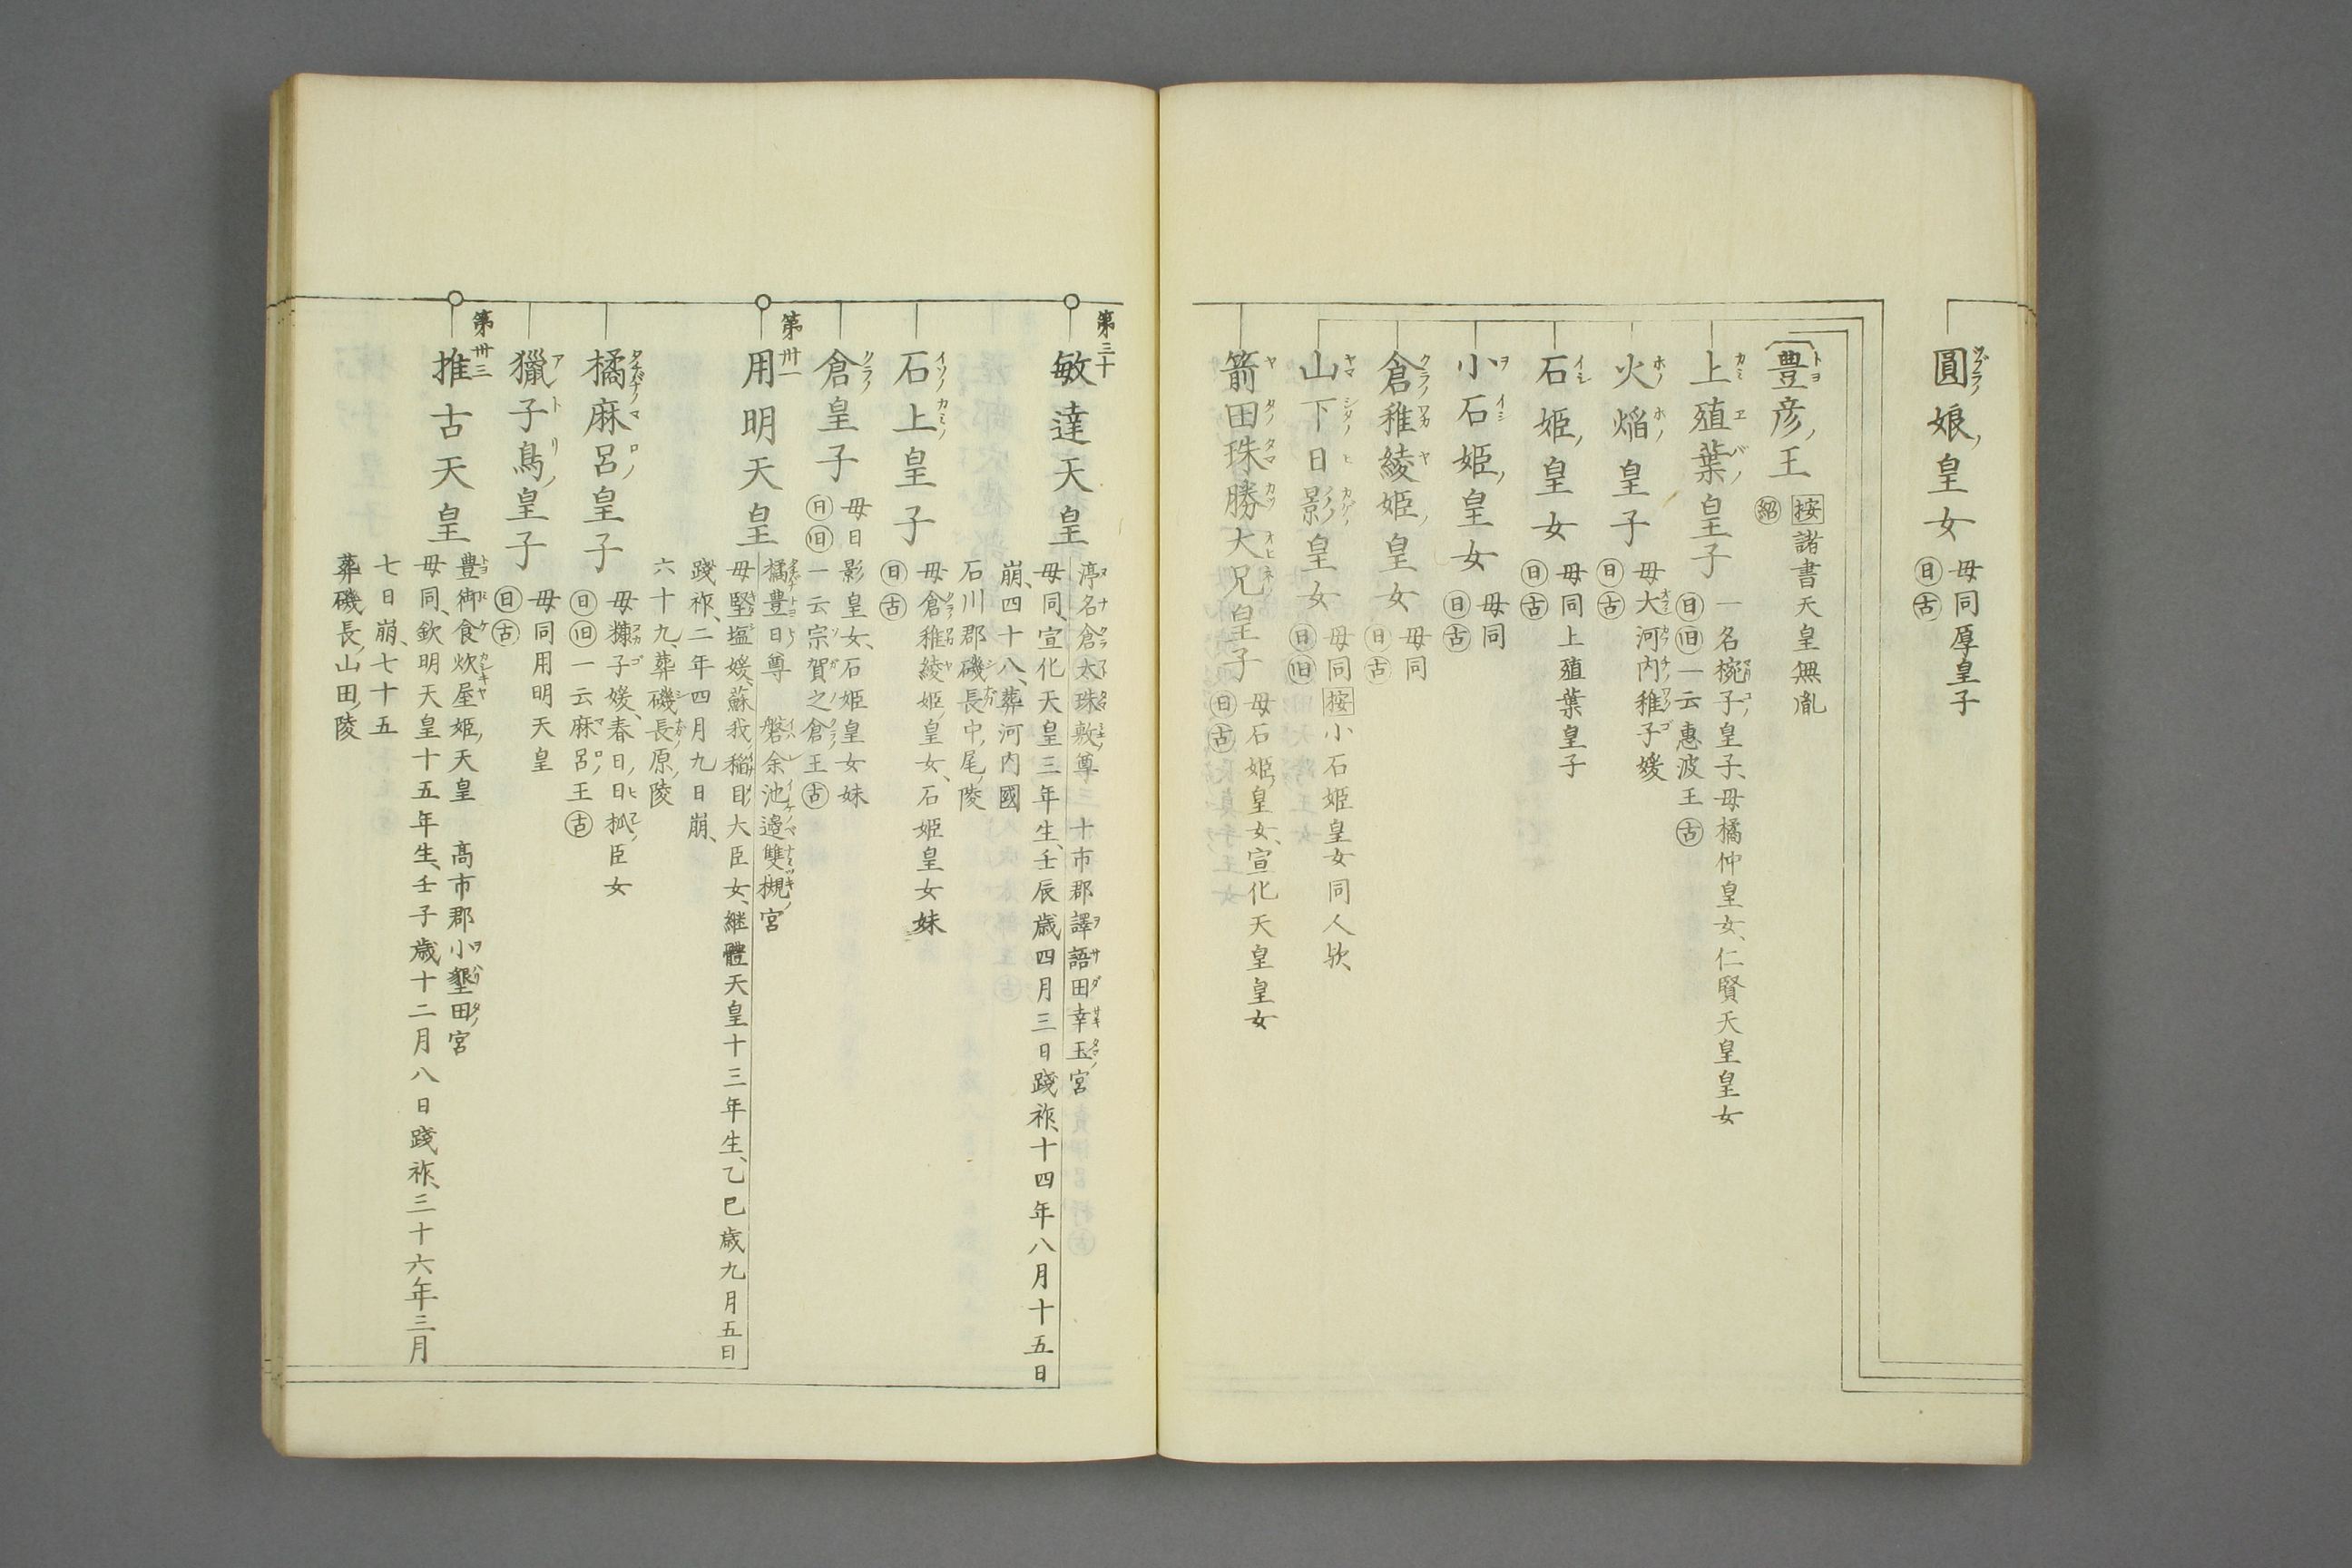 圓娘ノ皇女
母同厚皇子
㊐㊎古
豊彦ノ王
按諸書天皇無胤
紹
上殖葉ノ皇子
一名椀子ノ皇子、母橘仲皇女、仁賢天皇皇女
日旧一云惠波王古
火焔皇子
母大河内稚子媛
日古
石姫ノ皇女
母同上殖葉皇子
日古
小石姫ノ皇女
母同
日古
倉稚綾姫ノ皇女
母同
日古
山下日影ノ皇女
母同按小石姫皇女同人欤
日旧
箭田珠勝大兄皇子
母石姫ノ皇女、宣化天皇皇女
日古
第三十
敏達天皇
渟名倉太珠敷ノ尊 十市郡譯語田幸玉ノ宮
母同、宣化天皇三年生、壬辰歳四月三日踐祚、十四年八月十五日
崩、四十八、葬河内國
石川郡磯長中ノ尾ノ陵
石上皇子
母倉稚綾姫ノ皇女、石姫皇女妹
日古
倉皇子
母日影皇女、石姫皇女妹
日旧一云宗賀之倉王古
第卅一
用明天皇
橘豊日ノ尊 磐余池邉雙槻ノ宮
母堅塩媛、蘇我ノ稲目大臣女、継體天皇十三年生、乙巳歳九月五日
踐祚、二年四月九日崩、
六十九、葬磯長ノ原ノ陵
橘麻呂ノ皇子
母糠子媛、春日ノ日抓ノ臣女
日旧一云麻呂ノ王古
獵子鳥ノ皇子
母同用明天皇
日古
第卅三
推古天皇
豊御食炊屋姫ノ天皇 髙市郡小墾田ノ宮
母同、欽明天皇十五年生、壬子歳十二月八日踐祚、三十六年三月
七日崩、七十五
葬磯長ノ山田ノ陵